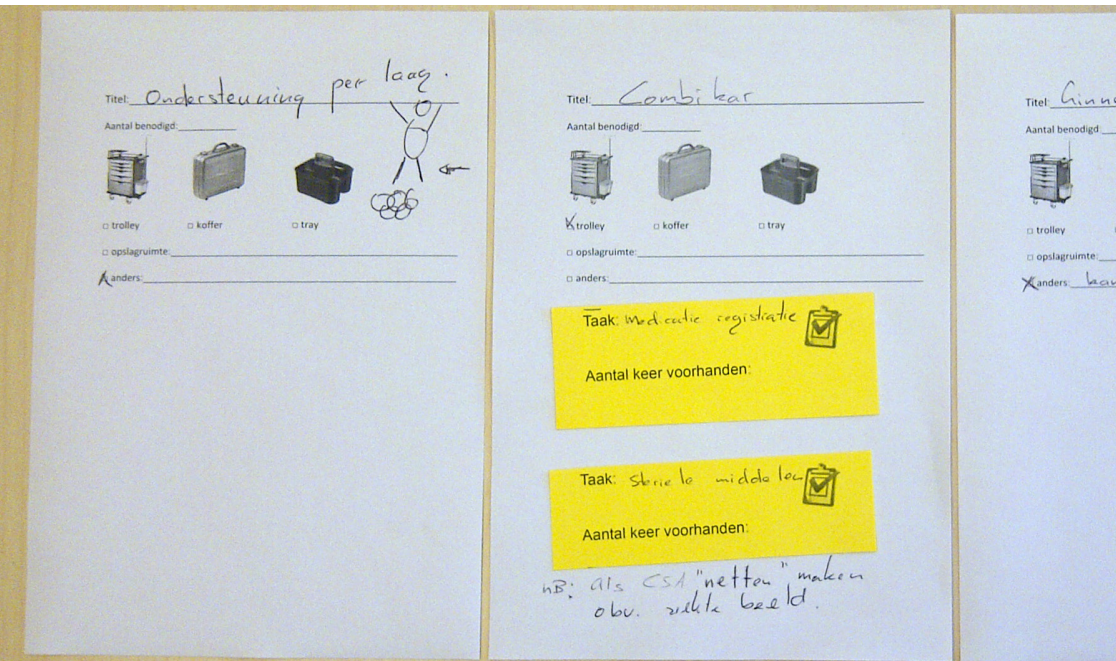 Titel: Ondersteuning per laag.
Aantal benodigd:
□ trolley □ koffer □ tray
□ opslagruimte:
□ anders:
Titel: Combi kar
Aantal benodigd:
□ trolley □ koffer □ tray
□ opslagruimte:
□ anders:
Taak: Medicatie registratie
Aantal keer voorhanden:
Taak: Steriele middelen
Aantal keer voorhanden:
NB: als CSA "netten" maken
obv. ziekte beeld.
Titel:
Aantal benodigd
□ trolley
□ opslagruimte:
anders: